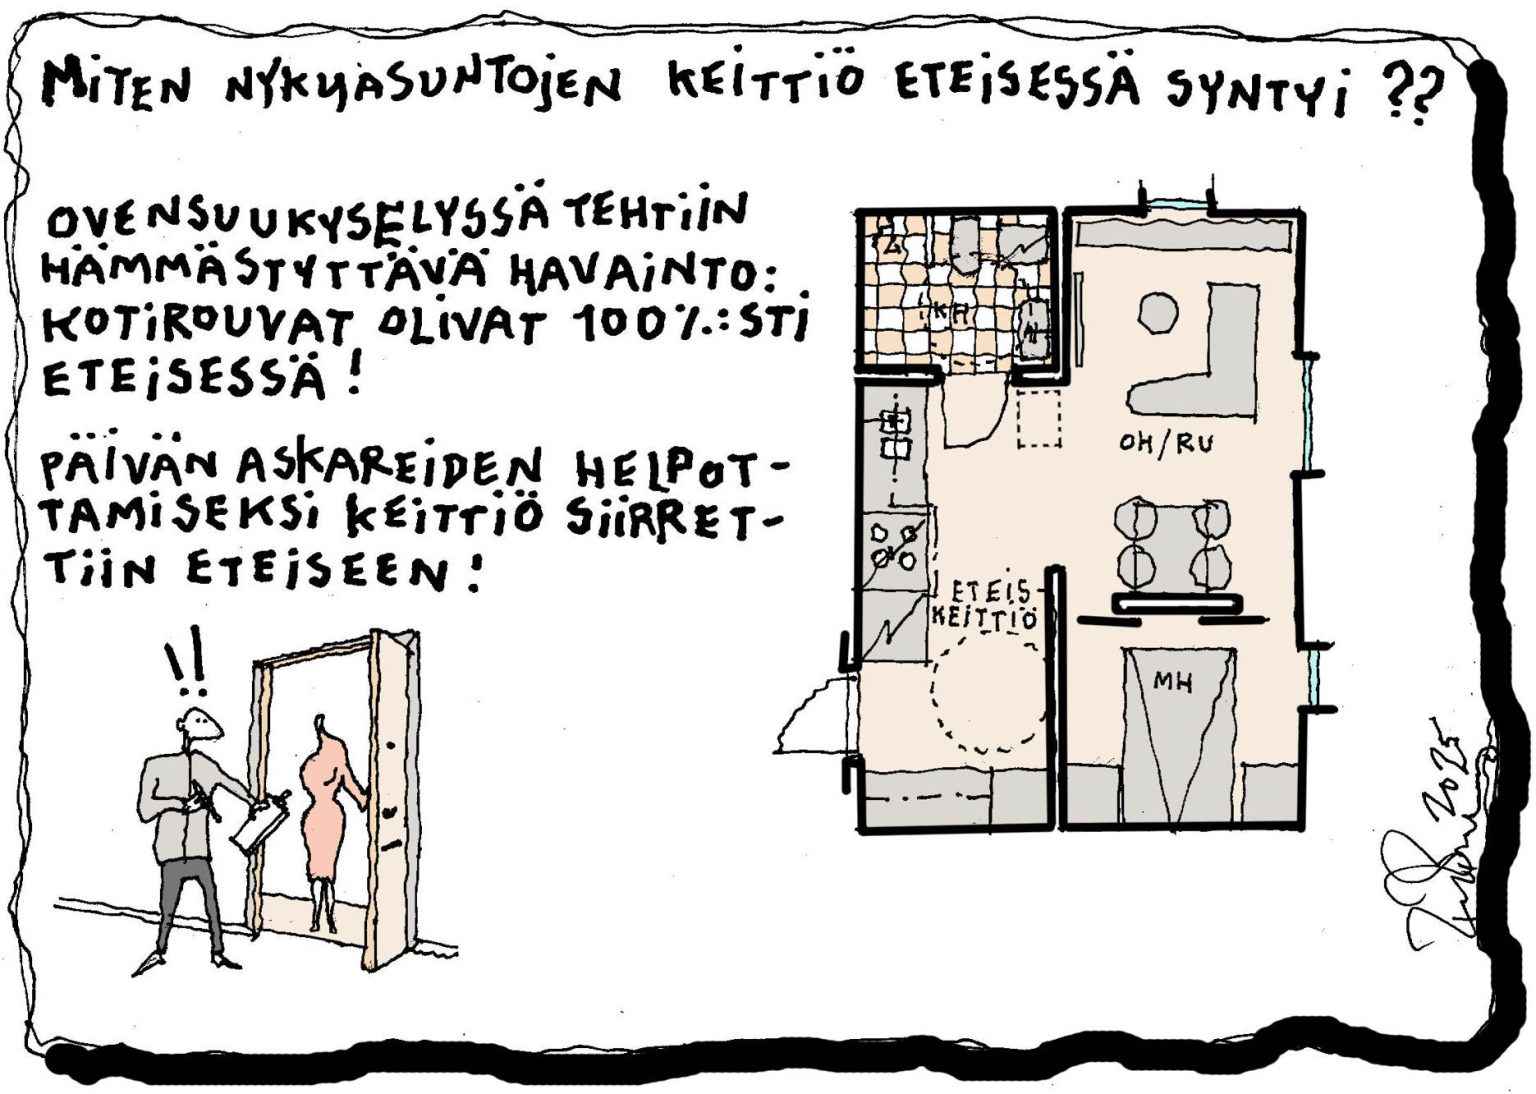 MITEN NYKYASUNTOJEN KEITTIÖ ETEISESSÄ SYNTYI ??
OVENSUUKYSELYSSÄ TEHTIIN
HÄMMÄSTYTTÄVÄ HAVAINTO:
KOTIROUVAT OLIVAT 100%:STI
ETEISESSÄ!
PÄIVÄN ASKAREIDEN HELPOT-
TAMISEKSI KEITTIÖ SIIRRET-
TIIN ETEISEEN!
!!
KH
OH/RU
ETEIS-
KEITTIÖ
MH
2025